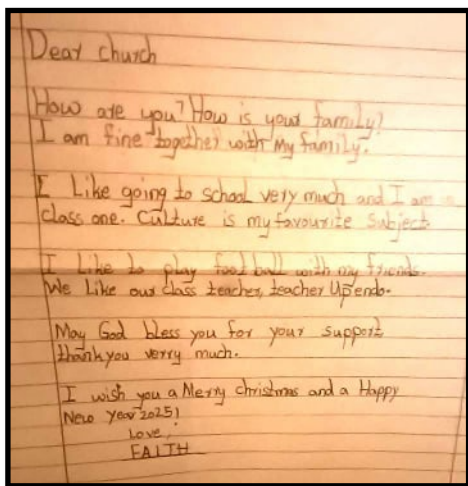 Dear church
How are you? How is your family?
I am fine together with My family.
I Like going to school very much and I am in
class one. Culture is my favourite subject.
I Like to play foot ball with my friends.
We Like our class teacher, teacher Upendo.
May God bless you for your support
thank you verry much.
I wish you a Merry christmas and a Happy
New Year 2025!
Love,
FAITH